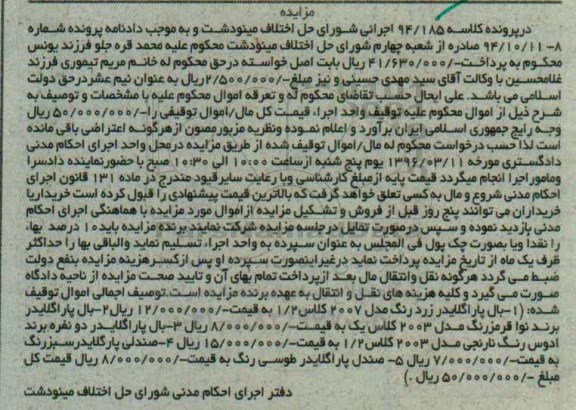 مزایده
درپرونده کلاسه ۹۴/۱۸۵ اجرائی شورای حل اختلاف مینودشت و به موجب دادنامه پرونده شماره
۸- ۹۴/۱۰/۱۱ صادره از شعبه چهارم شورای حل اختلاف مینودشت محکوم علیه محمد قره جلو فرزند یونس
محکوم به پرداخت-/۴۱/۶۳۰/۰۰۰ ریال بابت اصل خواسته درحق محکوم له خانم مریم تیموری فرزند
غلامحسین با وکالت آقای سید مهدی حسینی و نیز مبلغ-/۲/۵۰۰/۰۰۰ریال به عنوان نیم عشردرحق دولت
اسلامی می باشد. علی ایحال حسب تقاضای محکوم له و تعرفه اموال محکوم علیه با مشخصات و توصیف به
شرح ذیل از اموال محکوم علیه توقیف واحد اجرا، قیمت کل مال/اموال توقیفی را-/۵۰/۰۰۰/۰۰۰ ریال
وجه رایج جمهوری اسلامی ایران برآورد و اعلام نموده ونظریه مزبورمصون ازهرگونه اعتراضی باقی مانده
است لذا حسب درخواست محکوم له مال/اموال توقیف شده از طریق مزایده درمحل واحد اجرای احکام مدنی
دادگستری مورخه ۱۳۹۶/۰۳/۱۱ یوم پنج شنبه ازساعت ۱۰:۰۰ الی ۱۰:۳۰ صبح با حضورنماینده دادسرا
ومامور اجرا انجام میگردد قیمت پایه ازمبلغ کارشناسی وبا رعایت سایرقیود مندرج در ماده ۱۳۱ قانون اجرای
احکام مدنی شروع و مال به کسی تعلق خواهد گرفت که بالاترین قیمت پیشنهادی را قبول کرده است خریداریا
خریداران می توانند پنج روز قبل از فروش و تشکیل مزایده ازاموال مورد مزایده با هماهنگی اجرای احکام
مدنی بازدید نموده و سپس درصورت تمایل درجلسه مزایده شرکت نمایند برنده مزایده باید۱۰ درصد بها،
را نقدا ویا بصورت چک پول فی المجلس به عنوان سپرده به واحد اجراء تسلیم نماید والباقی بها را حداکثر
ظرف یک ماه از تاریخ مزایده پرداخت نماید درغیراینصورت سپرده او پس ازکسرهزینه مزایده بنفع دولت
ضبط می گردد هرگونه نقل وانتقال مال بعد ازپرداخت تمام بهای آن و تایید صحت مزایده از ناحیه دادگاه
صورت می گیرد و کلیه هزینه های نقل و انتقال به عهده برنده مزایده است.توصیف اجمالی اموال توقیف
شده: (۱-بال پاراگلایدر زرد رنگ مدل ۲۰۰۷ کلاس۱/۲ به قیمت-/۱۲/۰۰۰/۰۰۰ ریال۲-بال پاراگلایدر
برند نوا قرمزرنگ مدل ۲۰۰۳ کلاس یک به قیمت-/۸/۰۰۰/۰۰۰ ریال ۳-بال پاراگلایدر دو نفره برند
ادوس رنگ نارنجی مدل ۲۰۰۳ کلاس۱/۲ به قیمت-/۱۵/۰۰۰/۰۰۰ ریال ۴-صندلی پارگلایدرسبزرنگ
به قیمت-/۷/۰۰۰/۰۰۰ ریال ۵- صندل پاراگلایدر طوسی رنگ به قیمت-/۸/۰۰۰/۰۰۰ ریال قیمت کل
مبلغ -/۵۰/۰۰۰/۰۰۰ ریال .)
دفتر اجرای احکام مدنی شورای حل اختلاف مینودشت